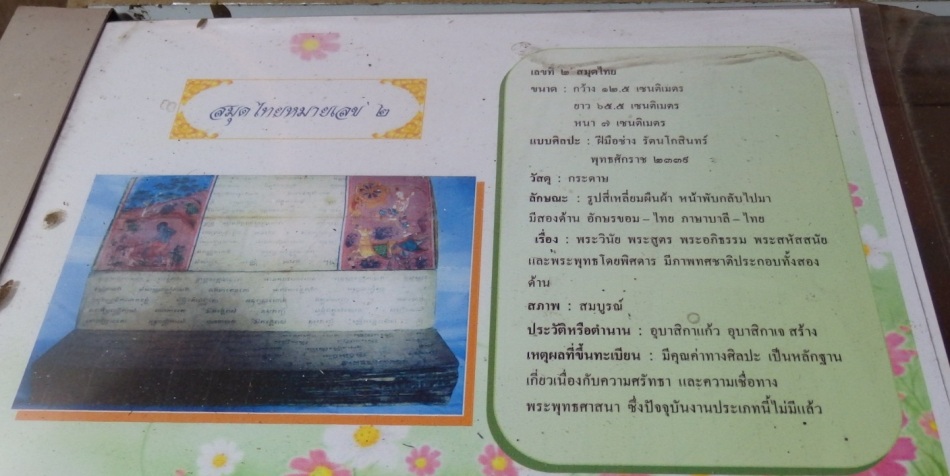 สมุดไทยหมายเลข ๒
เลขที่ ๒ สมุดไทย
ขนาด : กว้าง ๑๒.๕ เซนติเมตร
ยาว ๖๕.๕ เซนติเมตร
หนา ๗ เซนติเมตร
แบบศิลปะ : ฝีมือช่าง รัตนโกสินทร์
พุทธศักราช ๒๓๓๙
วัสดุ : กระดาษ
ลักษณะ : รูปสี่เหลี่ยมผืนผ้า หน้าพับกลับไปมา
มีสองด้าน อักษรขอม – ไทย ภาษาบาลี – ไทย
เรื่อง : พระวินัย พระสูตร พระอภิธรรม พระสหัสสนัย
และพระพุทธโดยพิศดาร มีภาพทศชาติประกอบทั้งสอง
ด้าน
สภาพ : สมบูรณ์
ประวัติหรือตำนาน : อุบาสิกาแก้ว อุบาสิกาจ สร้าง
เหตุผลที่ขึ้นทะเบียน : มีคุณค่าทางศิลปะ เป็นหลักฐาน
เกี่ยวเนื่องกับความศรัทธา และความเชื่อทาง
พระพุทธศาสนา ซึ่งปัจจุบันงานประเภทนี้ไม่มีแล้ว